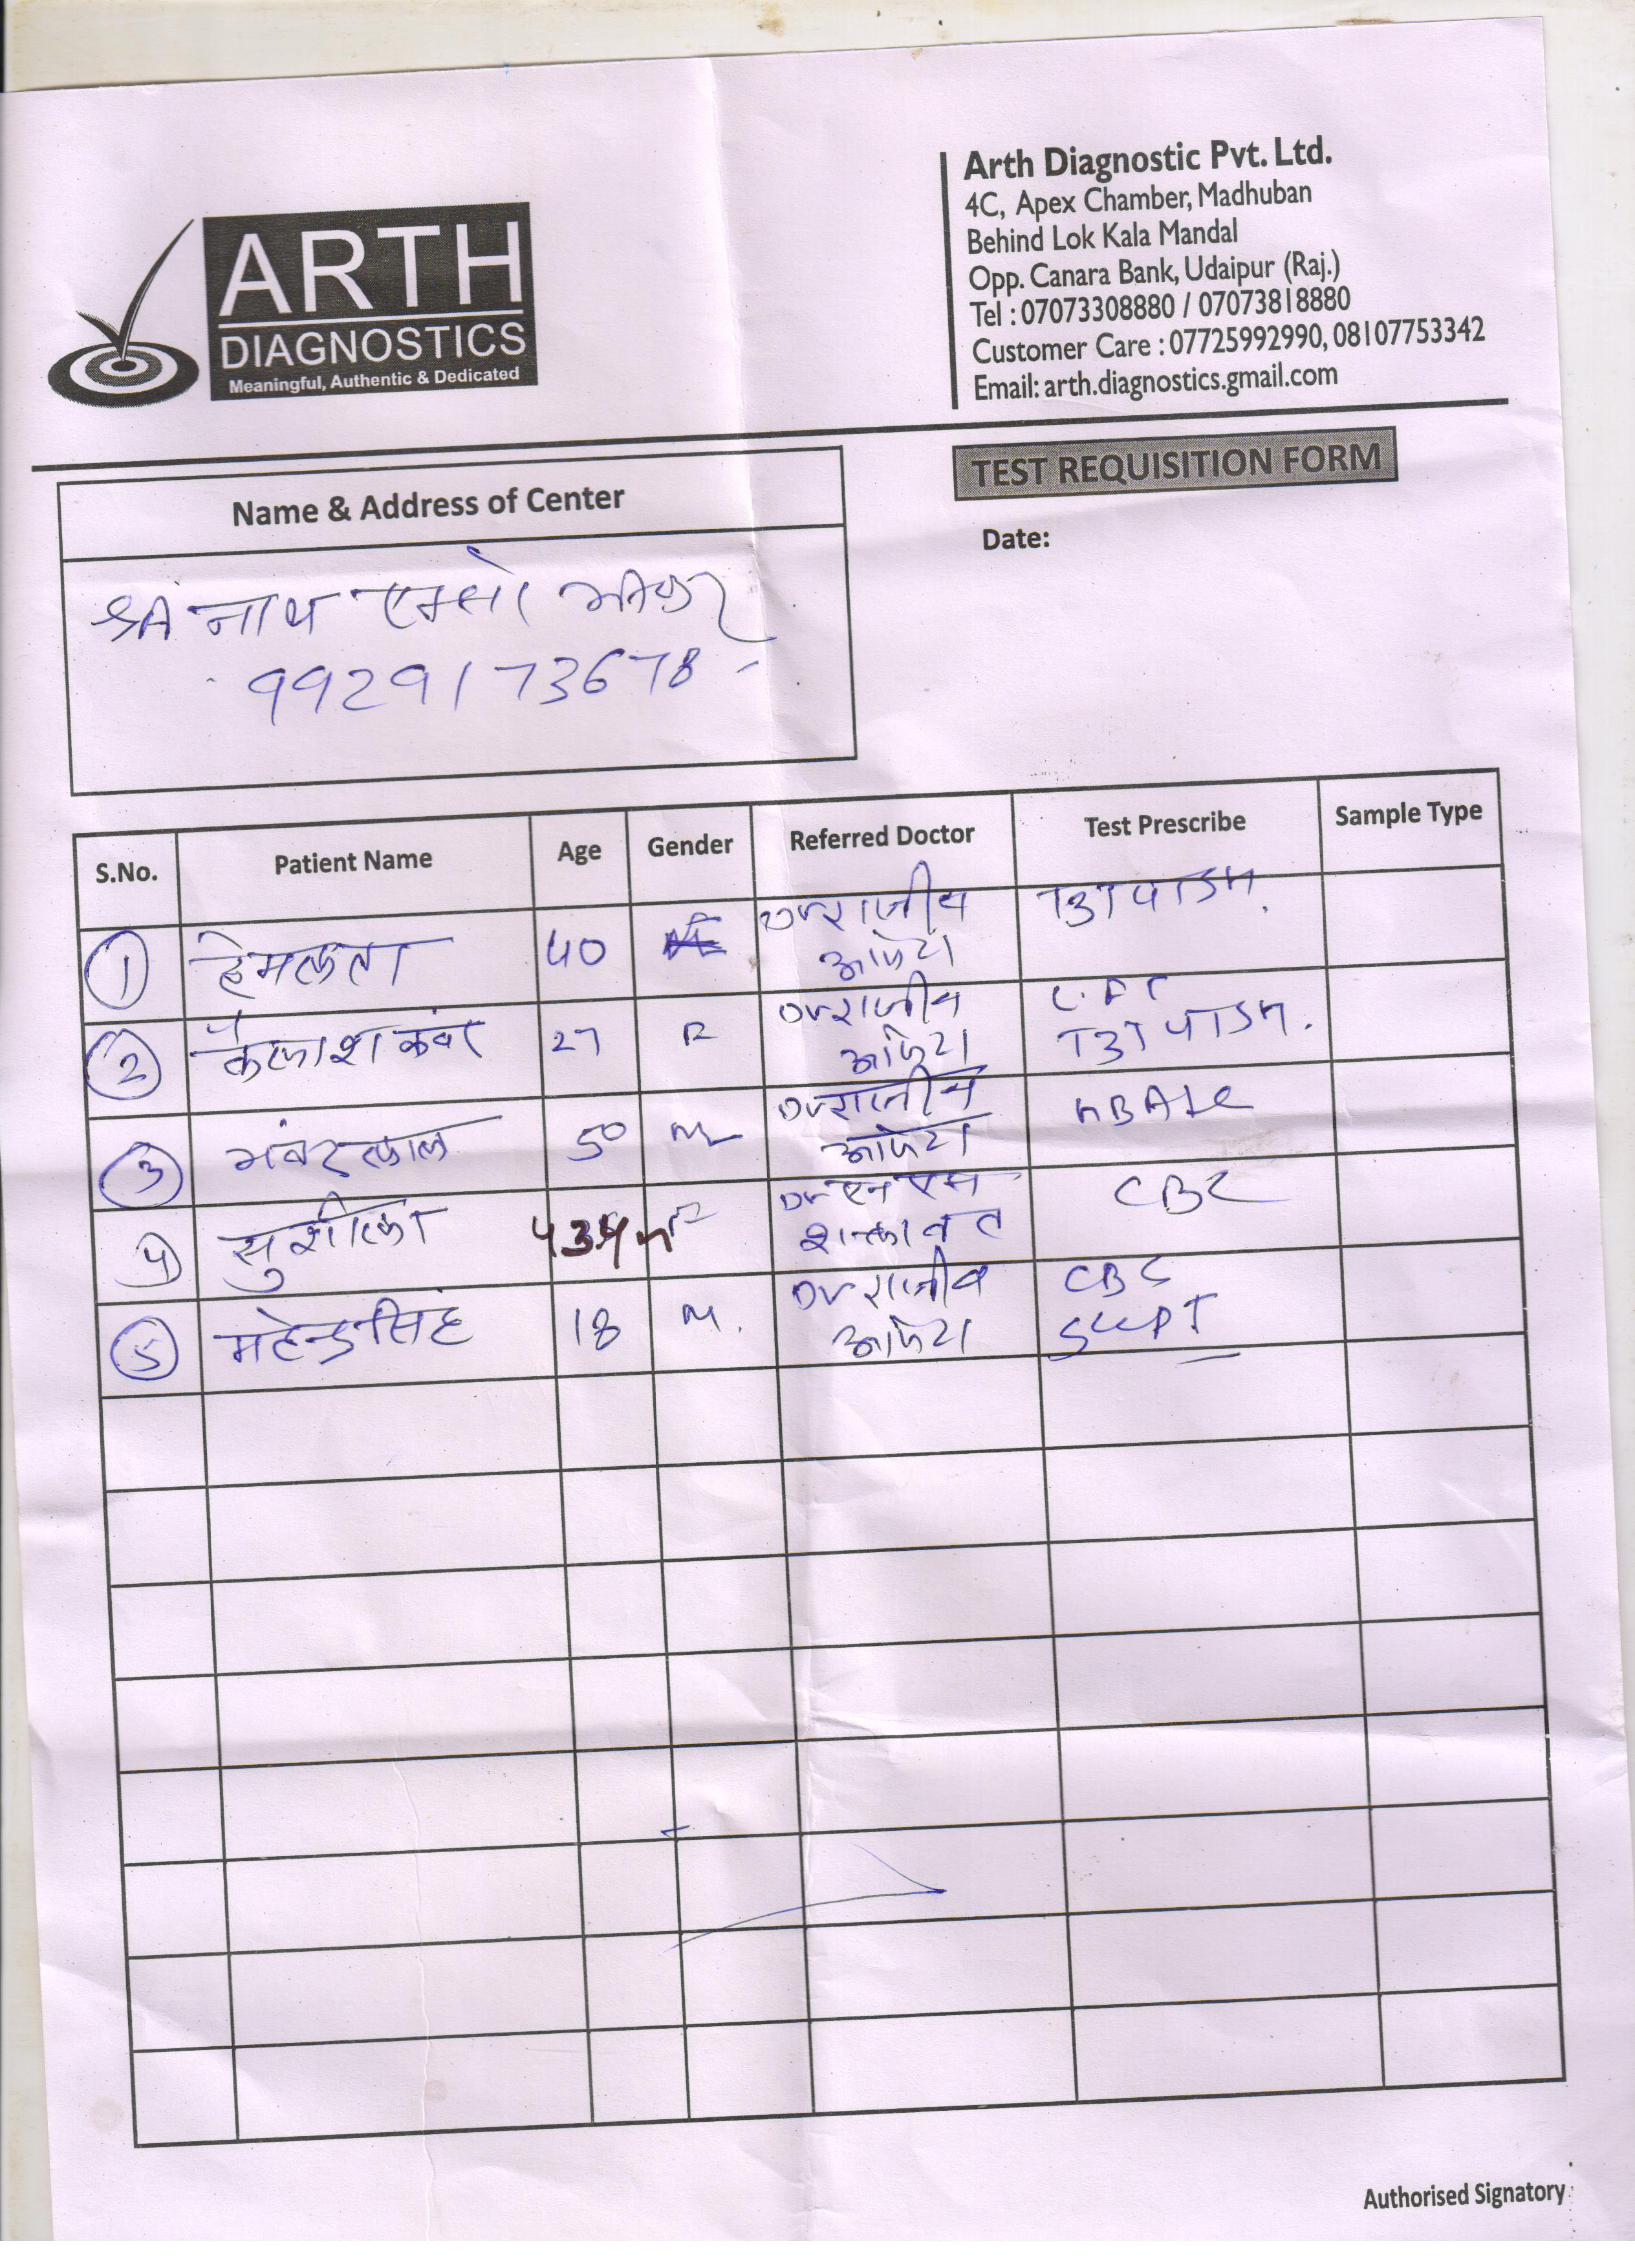 ARTH
DIAGNOSTICS
Meaningful, Authentic & Dedicated
Arth Diagnostic Pvt. Ltd.
4C, Apex Chamber, Madhuban
Behind Lok Kala Mandal
Opp. Canara Bank, Udaipur (Raj.)
Tel : 07073308880 / 07073818880
Customer Care : 07725992990, 08107753342
Email: arth.diagnostics.gmail.com
TEST REQUISITION FORM
Name & Address of Center
Date:
श्री नाथ
9929173678
S.No. Patient Name Age Gender Referred Doctor Test Prescribe Sample Type
1 हेमलता 40 Dr राजीव
2 कैलाश कंवर 27 F Dr राजीव
3 भंवरलाल 50 M Dr राजीव
4 सुशीला Dr एन एस CBC
शक्तावत
5 महेन्द्रसिंह 18 M. Dr राजीव CBC
SGPT
Authorised Signatory